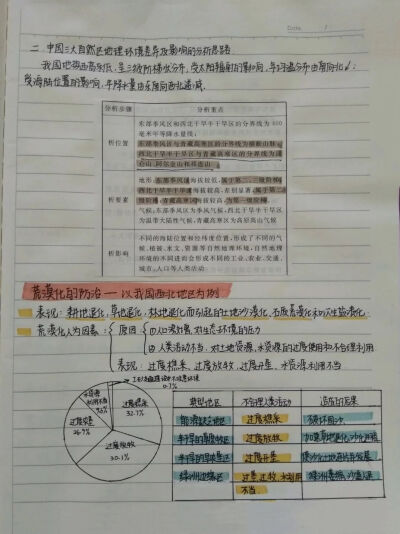 Date /
二、中国三大自然区地理环境差异及影响的分析思路
我国地势西高东低，呈三级阶梯状分布，受太阳辐射的影响，年均温分布由南向北↓；
受海陆位置的影响，年降水量由东南向西北递减。
分析步骤 分析重点
析位置
东部季风区和西北干旱半干旱区的分界线为400
毫米年等降水量线；
东部季风区与青藏高寒区的分界线为横断山脉；
西北干旱半干旱区与青藏高寒区的分界线为昆
仑山、阿尔金山和祁连山
析要素
地形：东部季风区海拔较低，属于第二、三级阶梯；
西北干旱半干旱区海拔较高，差别显著，属于第二
级阶梯；青藏高寒区海拔较高，为第一级阶梯。
气候：东部季风区为季风气候，西北干旱半干旱区
为温带大陆性气候，青藏高寒区为高原高山气候
析影响
不同的海陆位置和经纬度位置，形成了不同的气
候、植被、水文、资源等自然地理环境，自然地理
环境的不同进而会形成不同的工业、农业、交通、
城市、人口等人类活动
荒漠化的防治——以我国西北地区为例
表现：耕地退化，草地退化，林地退化而引起的土地沙漠化，石质荒漠化和次生盐渍化
荒漠化人为因素：原因 (1)人口激增对生态环境的压力
(2)人类活动不当，对土地资源、水资源的过度使用和不合理利用
表现：过度樵采，过度放牧，过度开垦，水资源利用不当
0.7%
水资源
利用不当
过度樵采
32.7%
过度放牧
30.1%
过度开垦
26.9%
类型地区 不合理人类活动 造成的后果
能源缺乏地区 过度樵采
半干旱的草原牧区 过度放牧
半干旱的农垦区 过度开垦
绿洲边缘区
不当